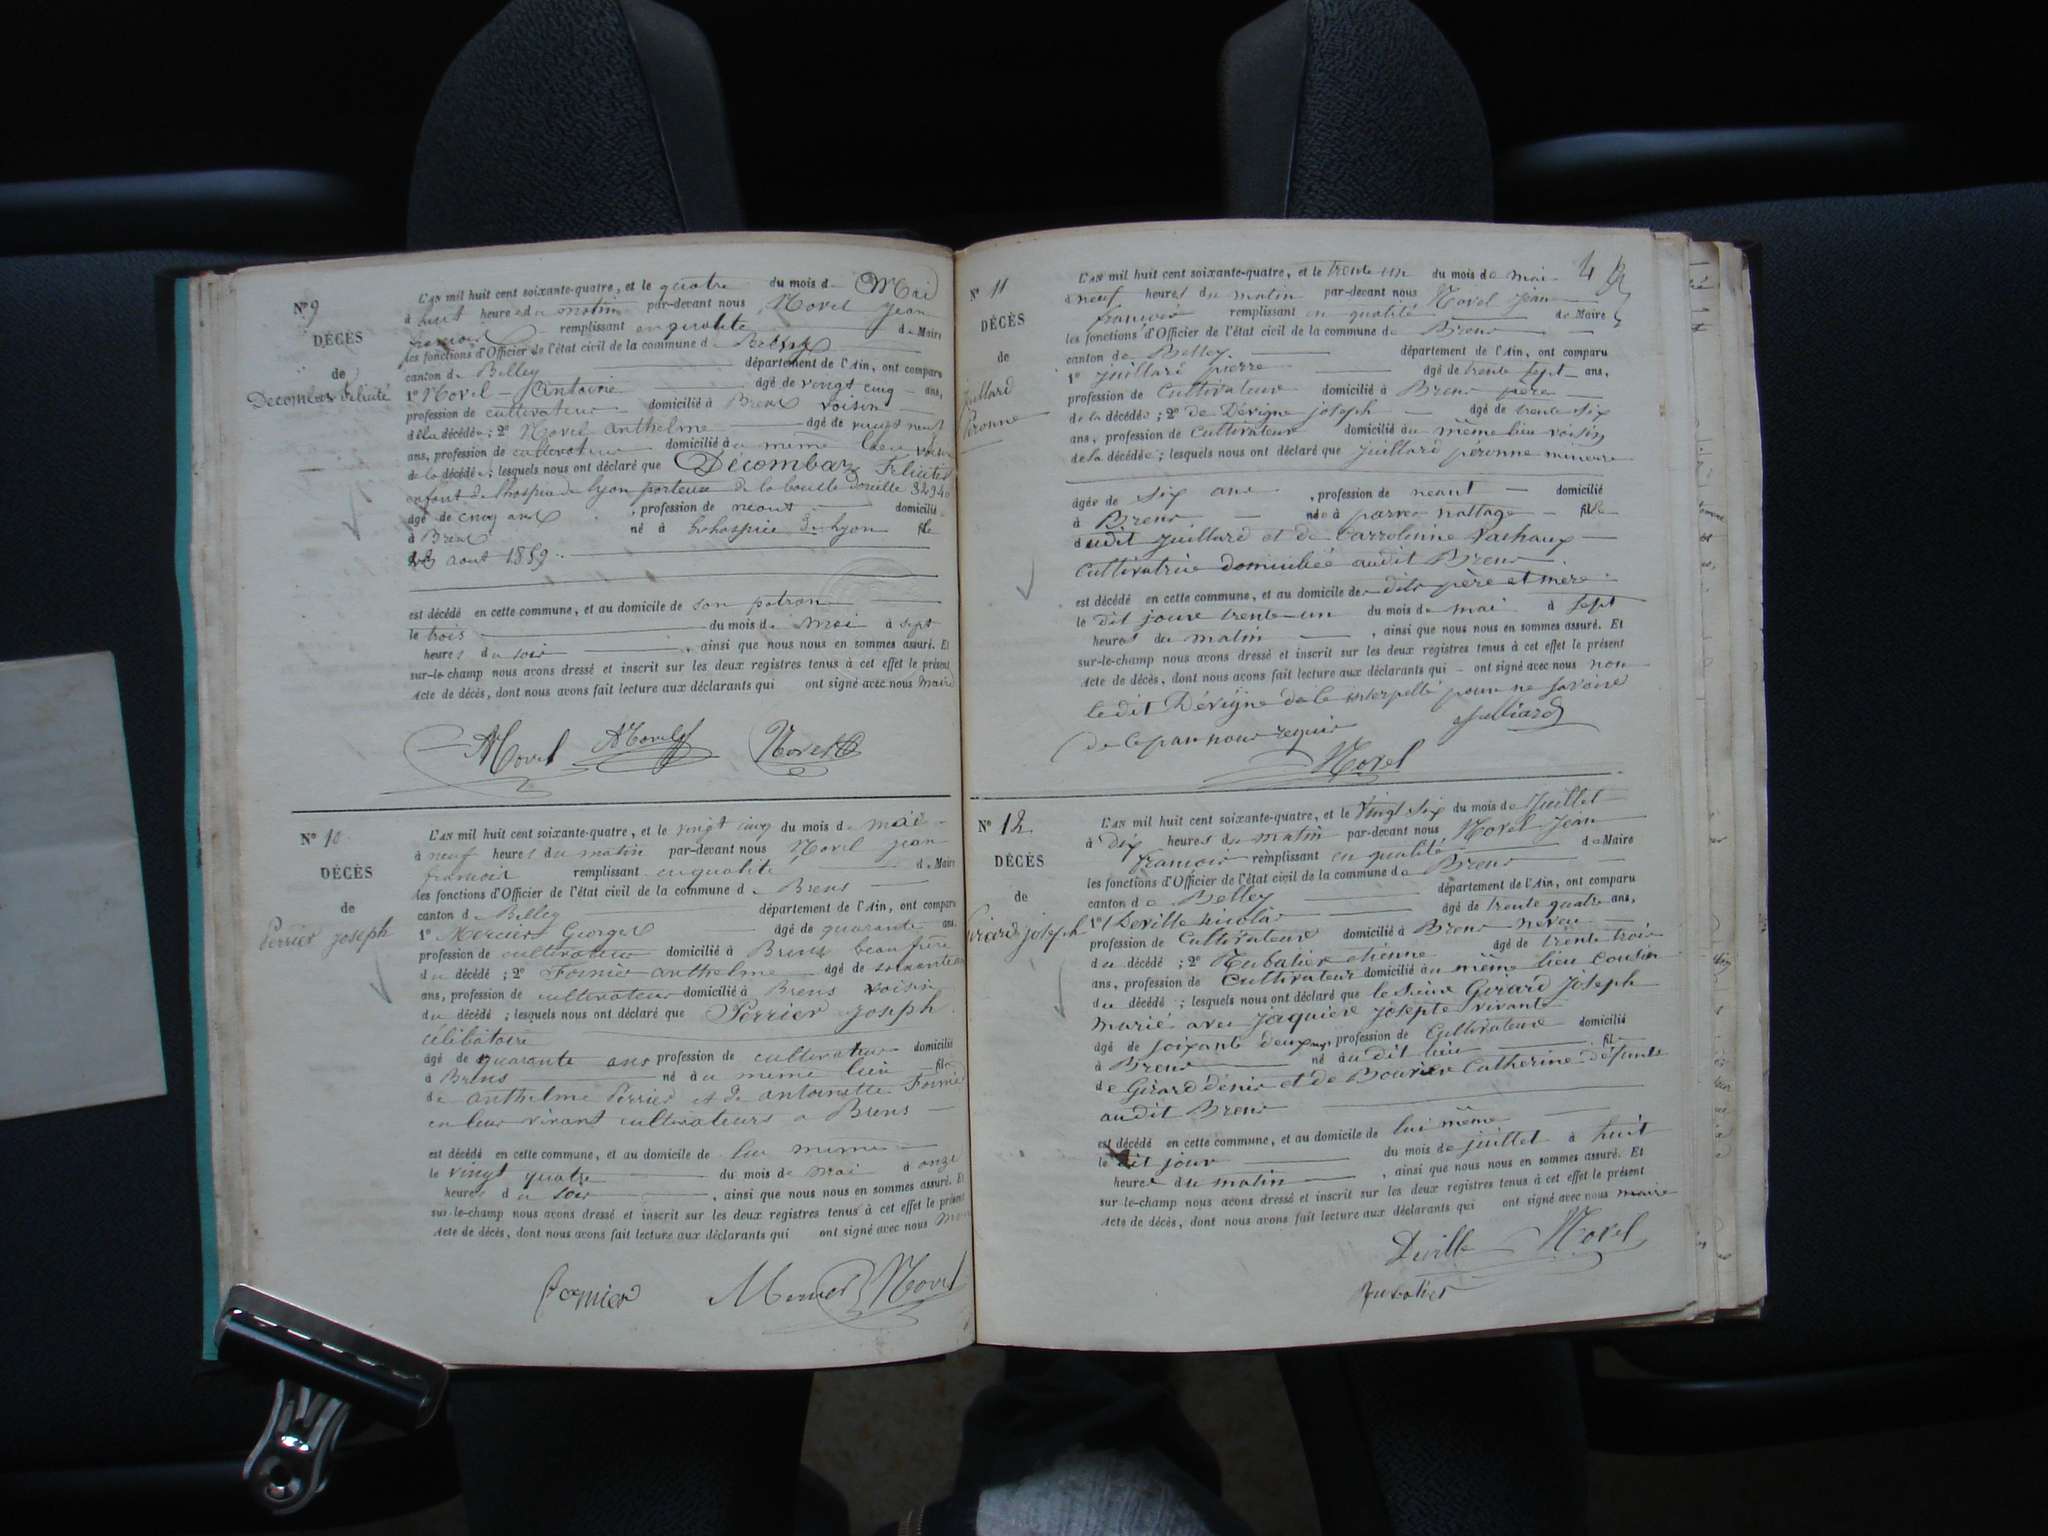 Nº 9
DÉCÈS
de
Decombar Félicité
L'AN mil huit cent soixante-quatre, et le quatre du mois de Mai
à huit heures du matin par-devant nous Movel jean
francois remplissant en qualité de Maire
les fonctions d'Officier de l'état civil de la commune d
canton de Belley département de l'Ain, ont comparu
1º Movel Antoine âgé de vingt cinq ans,
profession de cultivateur domicilié à Brens voisin
de la décédée; 2º Movel anthelme âgé de vingt neuf
ans, profession de cultivateur domicilié au meme lieu voisin
de la décédée; lesquels nous ont déclaré que Décombar Félicité
enfant de lhospice de lyon porteuse de la boucle doreille 32940
âgé de cinq ans, profession de néant domicilié
à Brens né à lhospice de lyon fille
aout 1859
est décédé en cette commune, et au domicile de son patron
le trois du mois de Mai à sept
heures du soir, ainsi que nous nous en sommes assuré. Et
sur-le-champ nous avons dressé et inscrit sur les deux registres tenus à cet effet le présent
Acte de décès, dont nous avons fait lecture aux déclarants qui ont signé avec nous Maire
AMovel AMovel Movel
Nº 10
DÉCÈS
de
Perrier joseph
L'AN mil huit cent soixante-quatre, et le vingt cinq du mois de mai
à neuf heures du matin par-devant nous Movel jean
francois remplissant en qualité de Maire
les fonctions d'Officier de l'état civil de la commune de Brens
canton de Belley département de l'Ain, ont comparu
1º Mercier Georges âgé de quarante ans,
profession de cultivateur domicilié à Brens beau frère
du décédé; 2º Fornier anthelme âgé de soixante
ans, profession de cultivateur domicilié à Brens voisin
du décédé; lesquels nous ont déclaré que Perrier joseph
célibataire
âgé de quarante ans profession de cultivateur domicilié
à Brens né à u meme lieu fils
de anthelme Perrier et de antoinette Fornier
en leur vivant cultivateurs a Brens
est décédé en cette commune, et au domicile de lui meme
le vingt quatre du mois de mai à onze
heures du soir, ainsi que nous nous en sommes assuré. Et
sur-le-champ nous avons dressé et inscrit sur les deux registres tenus à cet effet le présent
Acte de décès, dont nous avons fait lecture aux déclarants qui ont signé avec nous
Fornier Mercier Movel
4
Nº 11
DÉCÈS
de
juillard
Péronne
L'AN mil huit cent soixante-quatre, et le trente un du mois de mai
à neuf heures du matin par-devant nous Movel jean
françois remplissant en qualité de Maire
les fonctions d'Officier de l'état civil de la commune de Brens
canton de Belley département de l'Ain, ont comparu
1º juillard pierre âgé de trente sept ans,
profession de Cultivateur domicilié à Brens père
de la décédée; 2º de Dévigne joseph âgé de trente six
ans, profession de Cultivateur domicilié au même lieu voisin
de la décédée; lesquels nous ont déclaré que juillard péronne mineure
âgée de six ans, profession de neant domicilié
à Brens née à fille
dudit juillard et de Carroline Vachaux
Cultivatrice domiciliée audit Brens
est décédé en cette commune, et au domicile de dits père et mère
le dit jour trente-un du mois de mai à sept
heures du matin, ainsi que nous nous en sommes assuré. Et
sur-le-champ nous avons dressé et inscrit sur les deux registres tenus à cet effet le présent
Acte de décès, dont nous avons fait lecture aux déclarants qui ont signé avec nous non
ledit Dévigne de le interpellé pour ne savoir
de ce par nous requis
Movel
Nº 12
DÉCÈS
de
Girard joseph
L'AN mil huit cent soixante-quatre, et le vingt six du mois de Juillet
à dix heures du matin par-devant nous Movel Jean
francois remplissant en qualité de Maire
les fonctions d'Officier de l'état civil de la commune de Brens
canton de Belley département de l'Ain, ont comparu
1º Deville nicolas âgé de trente quatre ans,
profession de Cultivateur domicilié à Brens neveu
du décédé; 2º Rubatier etienne âgé de trente trois
ans, profession de Cultivateur domicilié au même lieu cousin
du décédé; lesquels nous ont déclaré que le sieur Girard joseph
marié avec jaquiere josepte vivante
âgé de soixante deux ans, profession de Cultivateur domicilié
à Brens né audit lieu fils
de Girard dénis et de Bouvier Catherine défunts
audit Brens
est décédé en cette commune, et au domicile de lui même
le dit jour du mois de juillet à huit
heures du matin, ainsi que nous nous en sommes assuré. Et
sur-le-champ nous avons dressé et inscrit sur les deux registres tenus à cet effet le présent
Acte de décès, dont nous avons fait lecture aux déclarants qui ont signé avec nous maire
Deville Movel
Rubatier